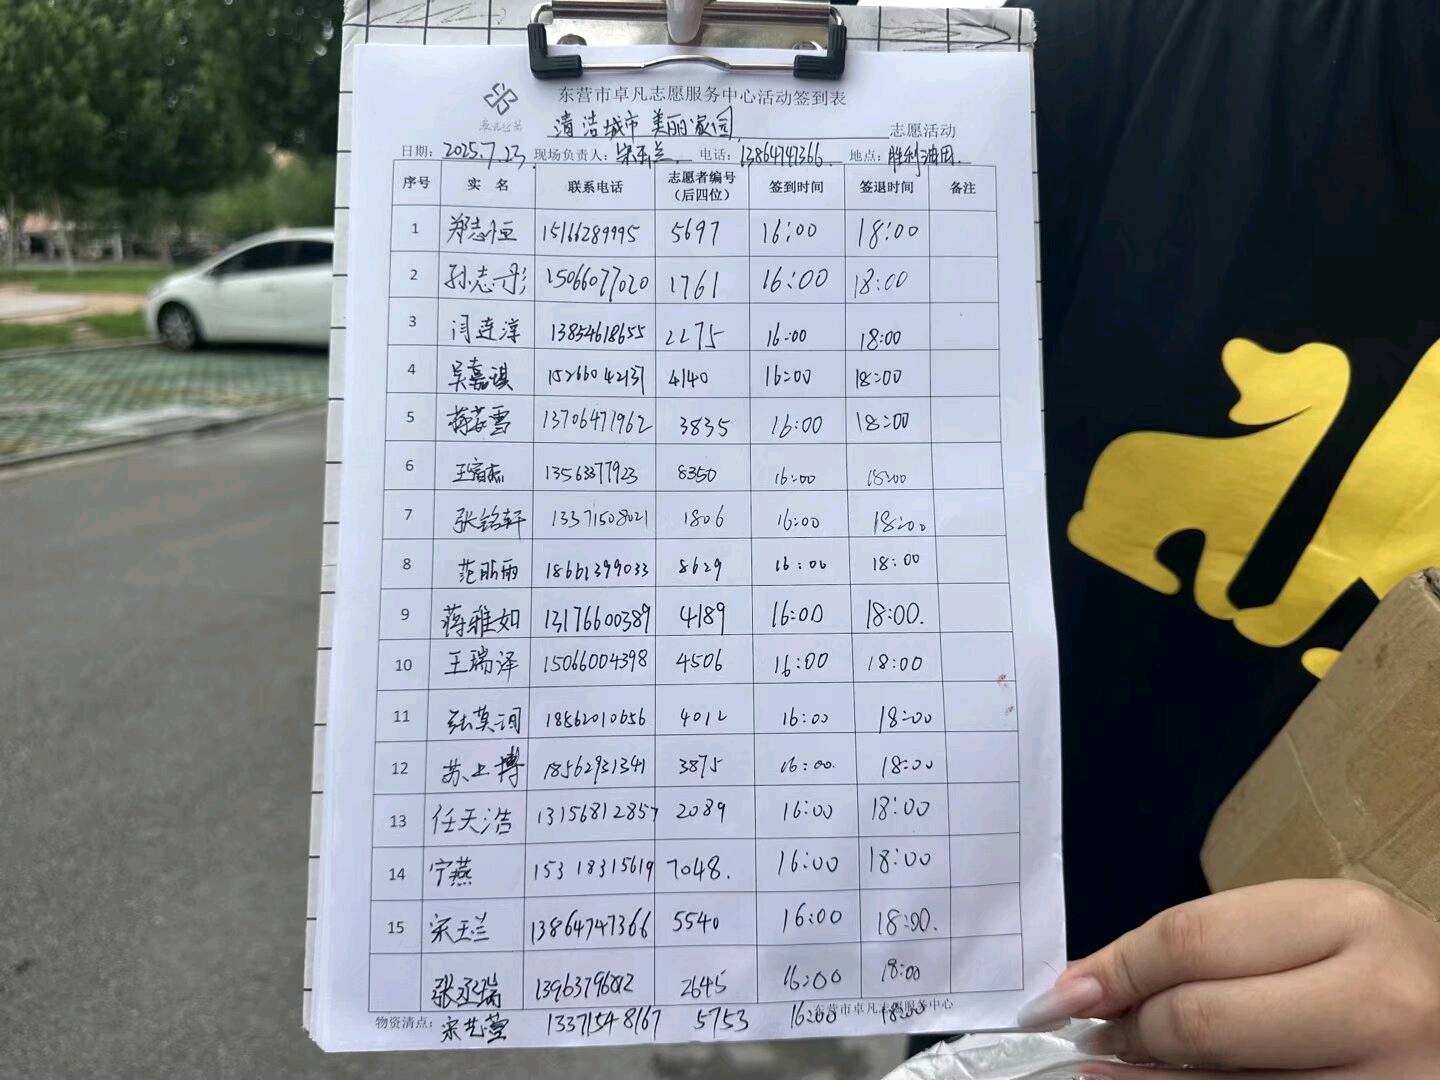 东营市卓凡志愿服务中心活动签到表
清洁城市 美丽家园 志愿活动
日期：2025.7.23 现场负责人：宋玉兰. 电话：13864747366. 地点：胜利油田.
序号 实 名 联系电话 志愿者编号（后四位） 签到时间 签退时间 备注
1 郑志恒 15166289995 5697 16:00 18:00
2 孙志彤 15066077020 1761 16:00 18:00
3 闫连淳 13854618655 2275 16:00 18:00
4 吴嘉琪 15266042131 4140 16:00 18:00
5 蒋若雪 13706477962 3835 16:00 18:00
6 王富杰 13563377923 8350 16:00 18:00
7 张铭轩 13371508021 1806 16:00 18:00
8 范丽雨 18661399033 8629 16:00 18:00
9 蒋雅如 13176600389 4189 16:00 18:00.
10 王瑞泽 15066004398 4506 16:00 18:00
11 张莫诩 18562010656 4012 16:00 18:00
12 苏上博 18562931341 3875 16:00. 18:00
13 任天浩 13156812857 2089 16:00 18:00
14 宁燕 15318315619 7048. 16:00 18:00
15 宋玉兰 13864747366 5540 16:00 18:00.
张丞瑞 2645 16:00 18:00
东营市卓凡志愿服务中心
物资清点： 宋艺萱 13371548167 5753 16:00 18:00